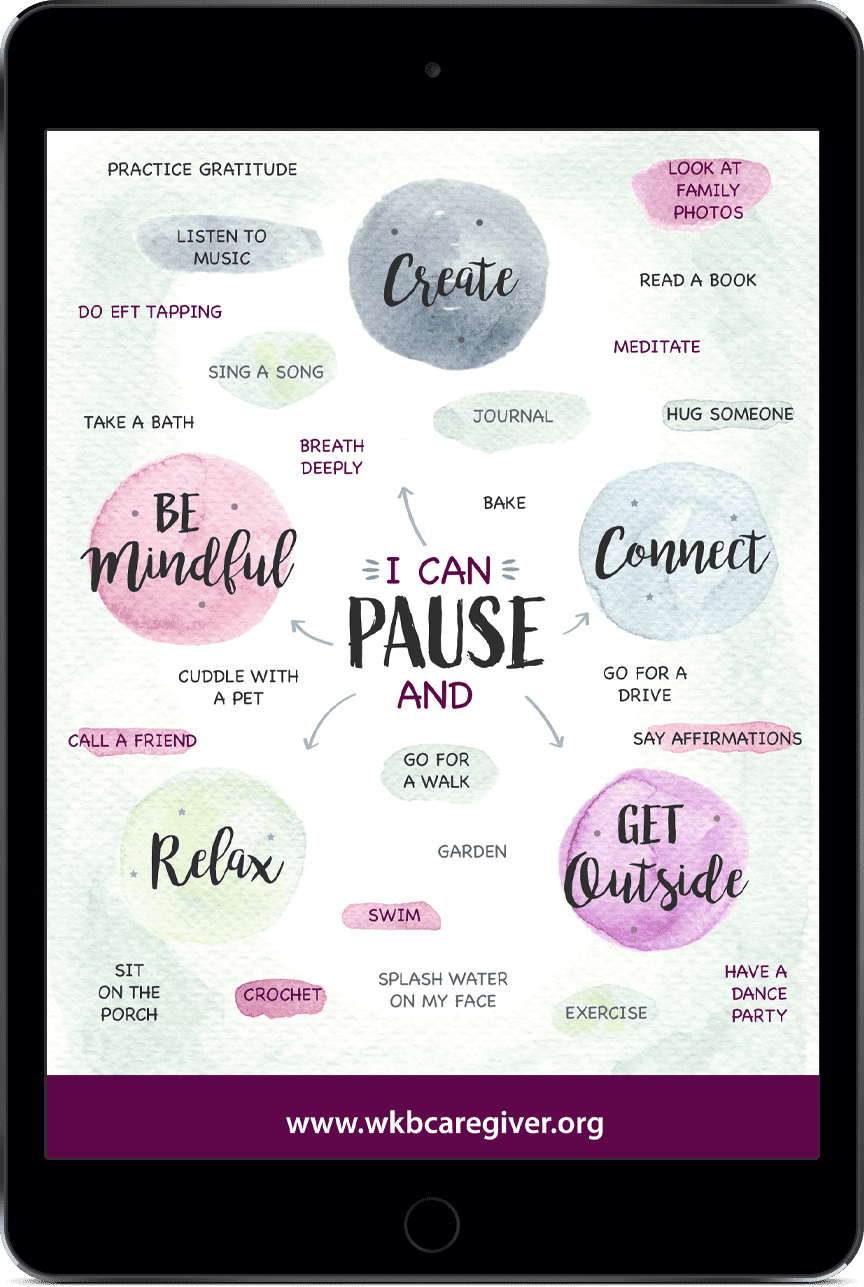 PRACTICE GRATITUDE
LOOK AT
FAMILY
PHOTOS
LISTEN TO
MUSIC
Create
READ A BOOK
DO EFT TAPPING
MEDITATE
SING A SONG
JOURNAL
HUG SOMEONE
TAKE A BATH
BREATH
DEEPLY
BAKE
BE
Mindful
Connect
I CAN
PAUSE
AND
CUDDLE WITH
A PET
GO FOR A
DRIVE
CALL A FRIEND
SAY AFFIRMATIONS
GO FOR
A WALK
Relax
GARDEN
GET
Outside
SWIM
SIT
ON THE
PORCH
CROCHET
SPLASH WATER
ON MY FACE
EXERCISE
HAVE A
DANCE
PARTY
www.wkbcaregiver.org